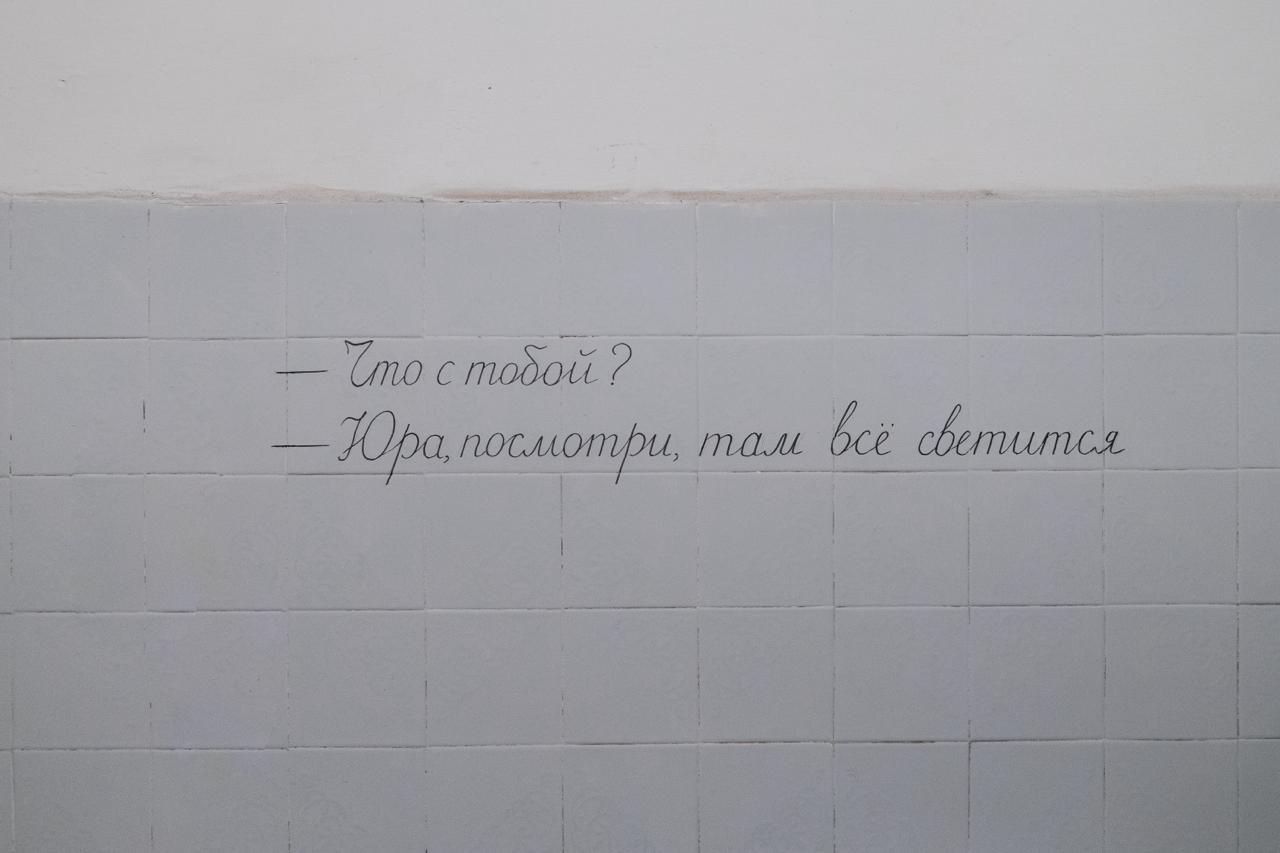 — Что с тобой?
— Юра, посмотри, там всё светится